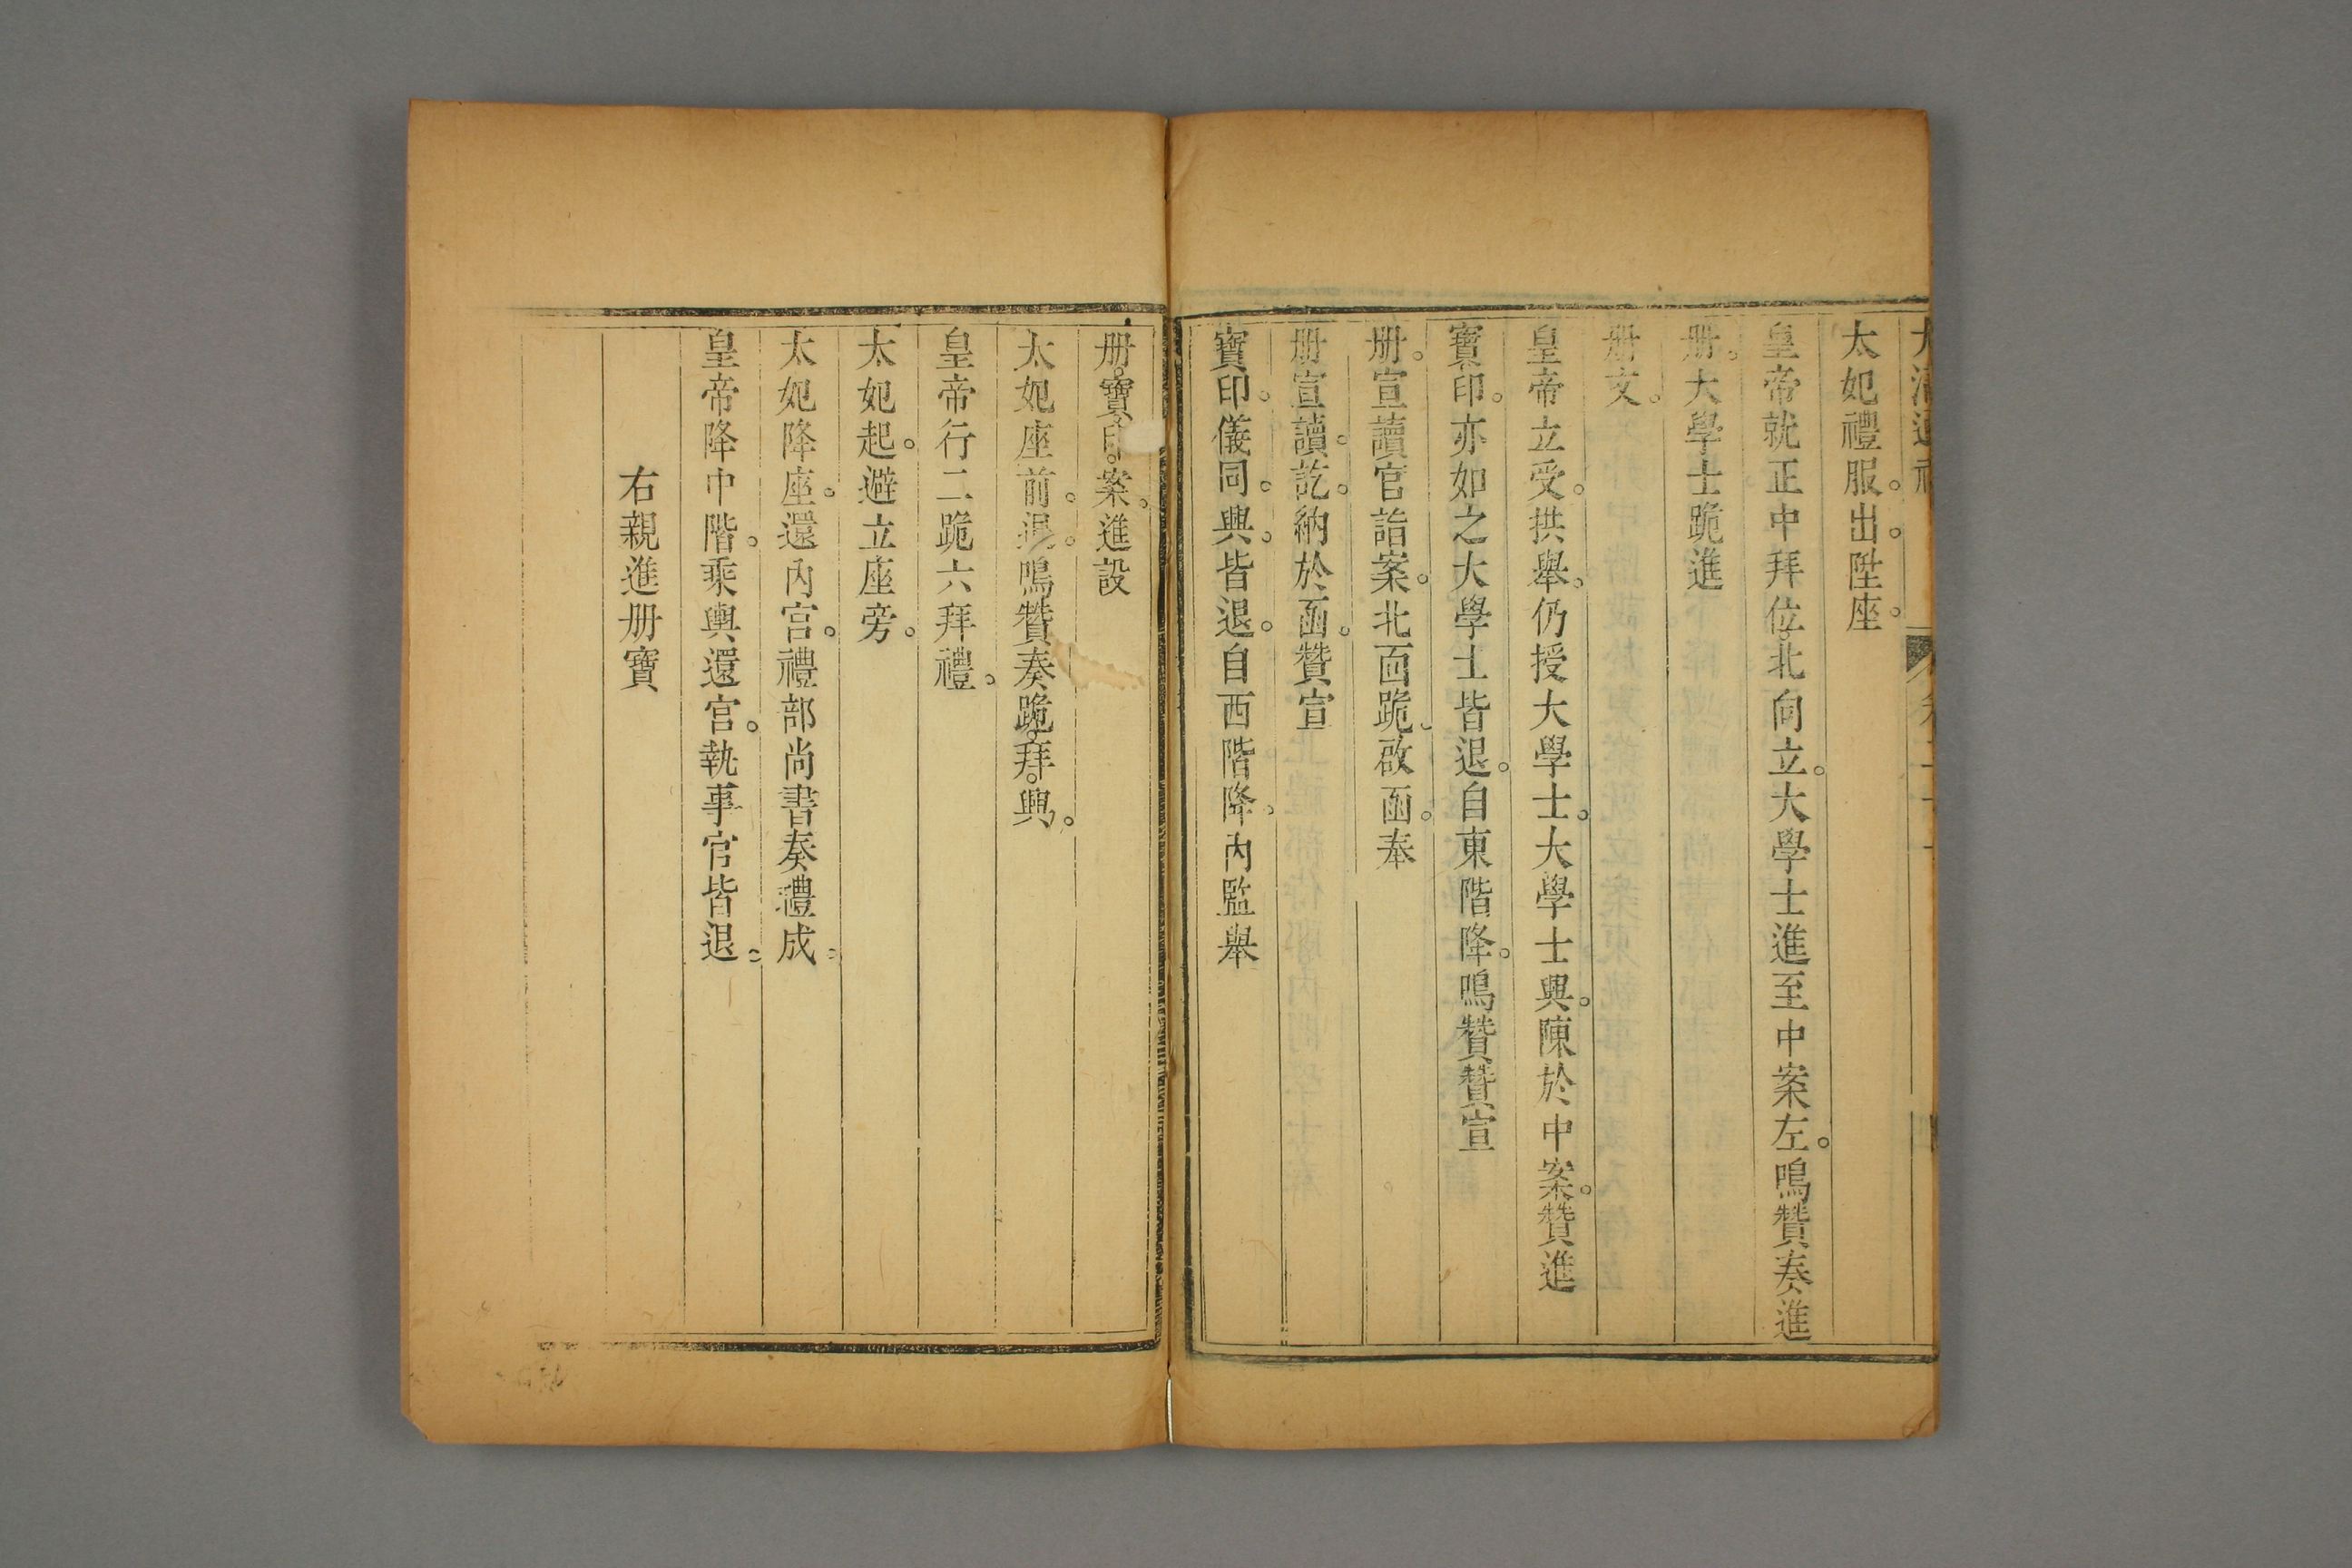 太妃禮服。出。陞座。
皇帝就正中拜位。北向立。大學士進至中案左。鳴贊奏進
册。大學士跪進
册文。
皇帝立受。拱舉。仍授大學士。大學士興。陳於中案。贊進
寶印。亦如之大學士皆退。自東階降。鳴贊贊宣
册。宣讀官詣案。北面跪。啟函。奉
册宣讀。訖。納於函。贊宣
寶印。儀同。興。皆退。自西階降。內監舉
册。寶印。案。進設
太妃座前。退。鳴贊奏跪。拜。興。
皇帝行二跪六拜禮。
太妃起。避立座旁。
太妃降座。還內宮。禮部尚書奏禮成。
皇帝降中階。乘輿還宮。執事官皆退。
右親進册寶